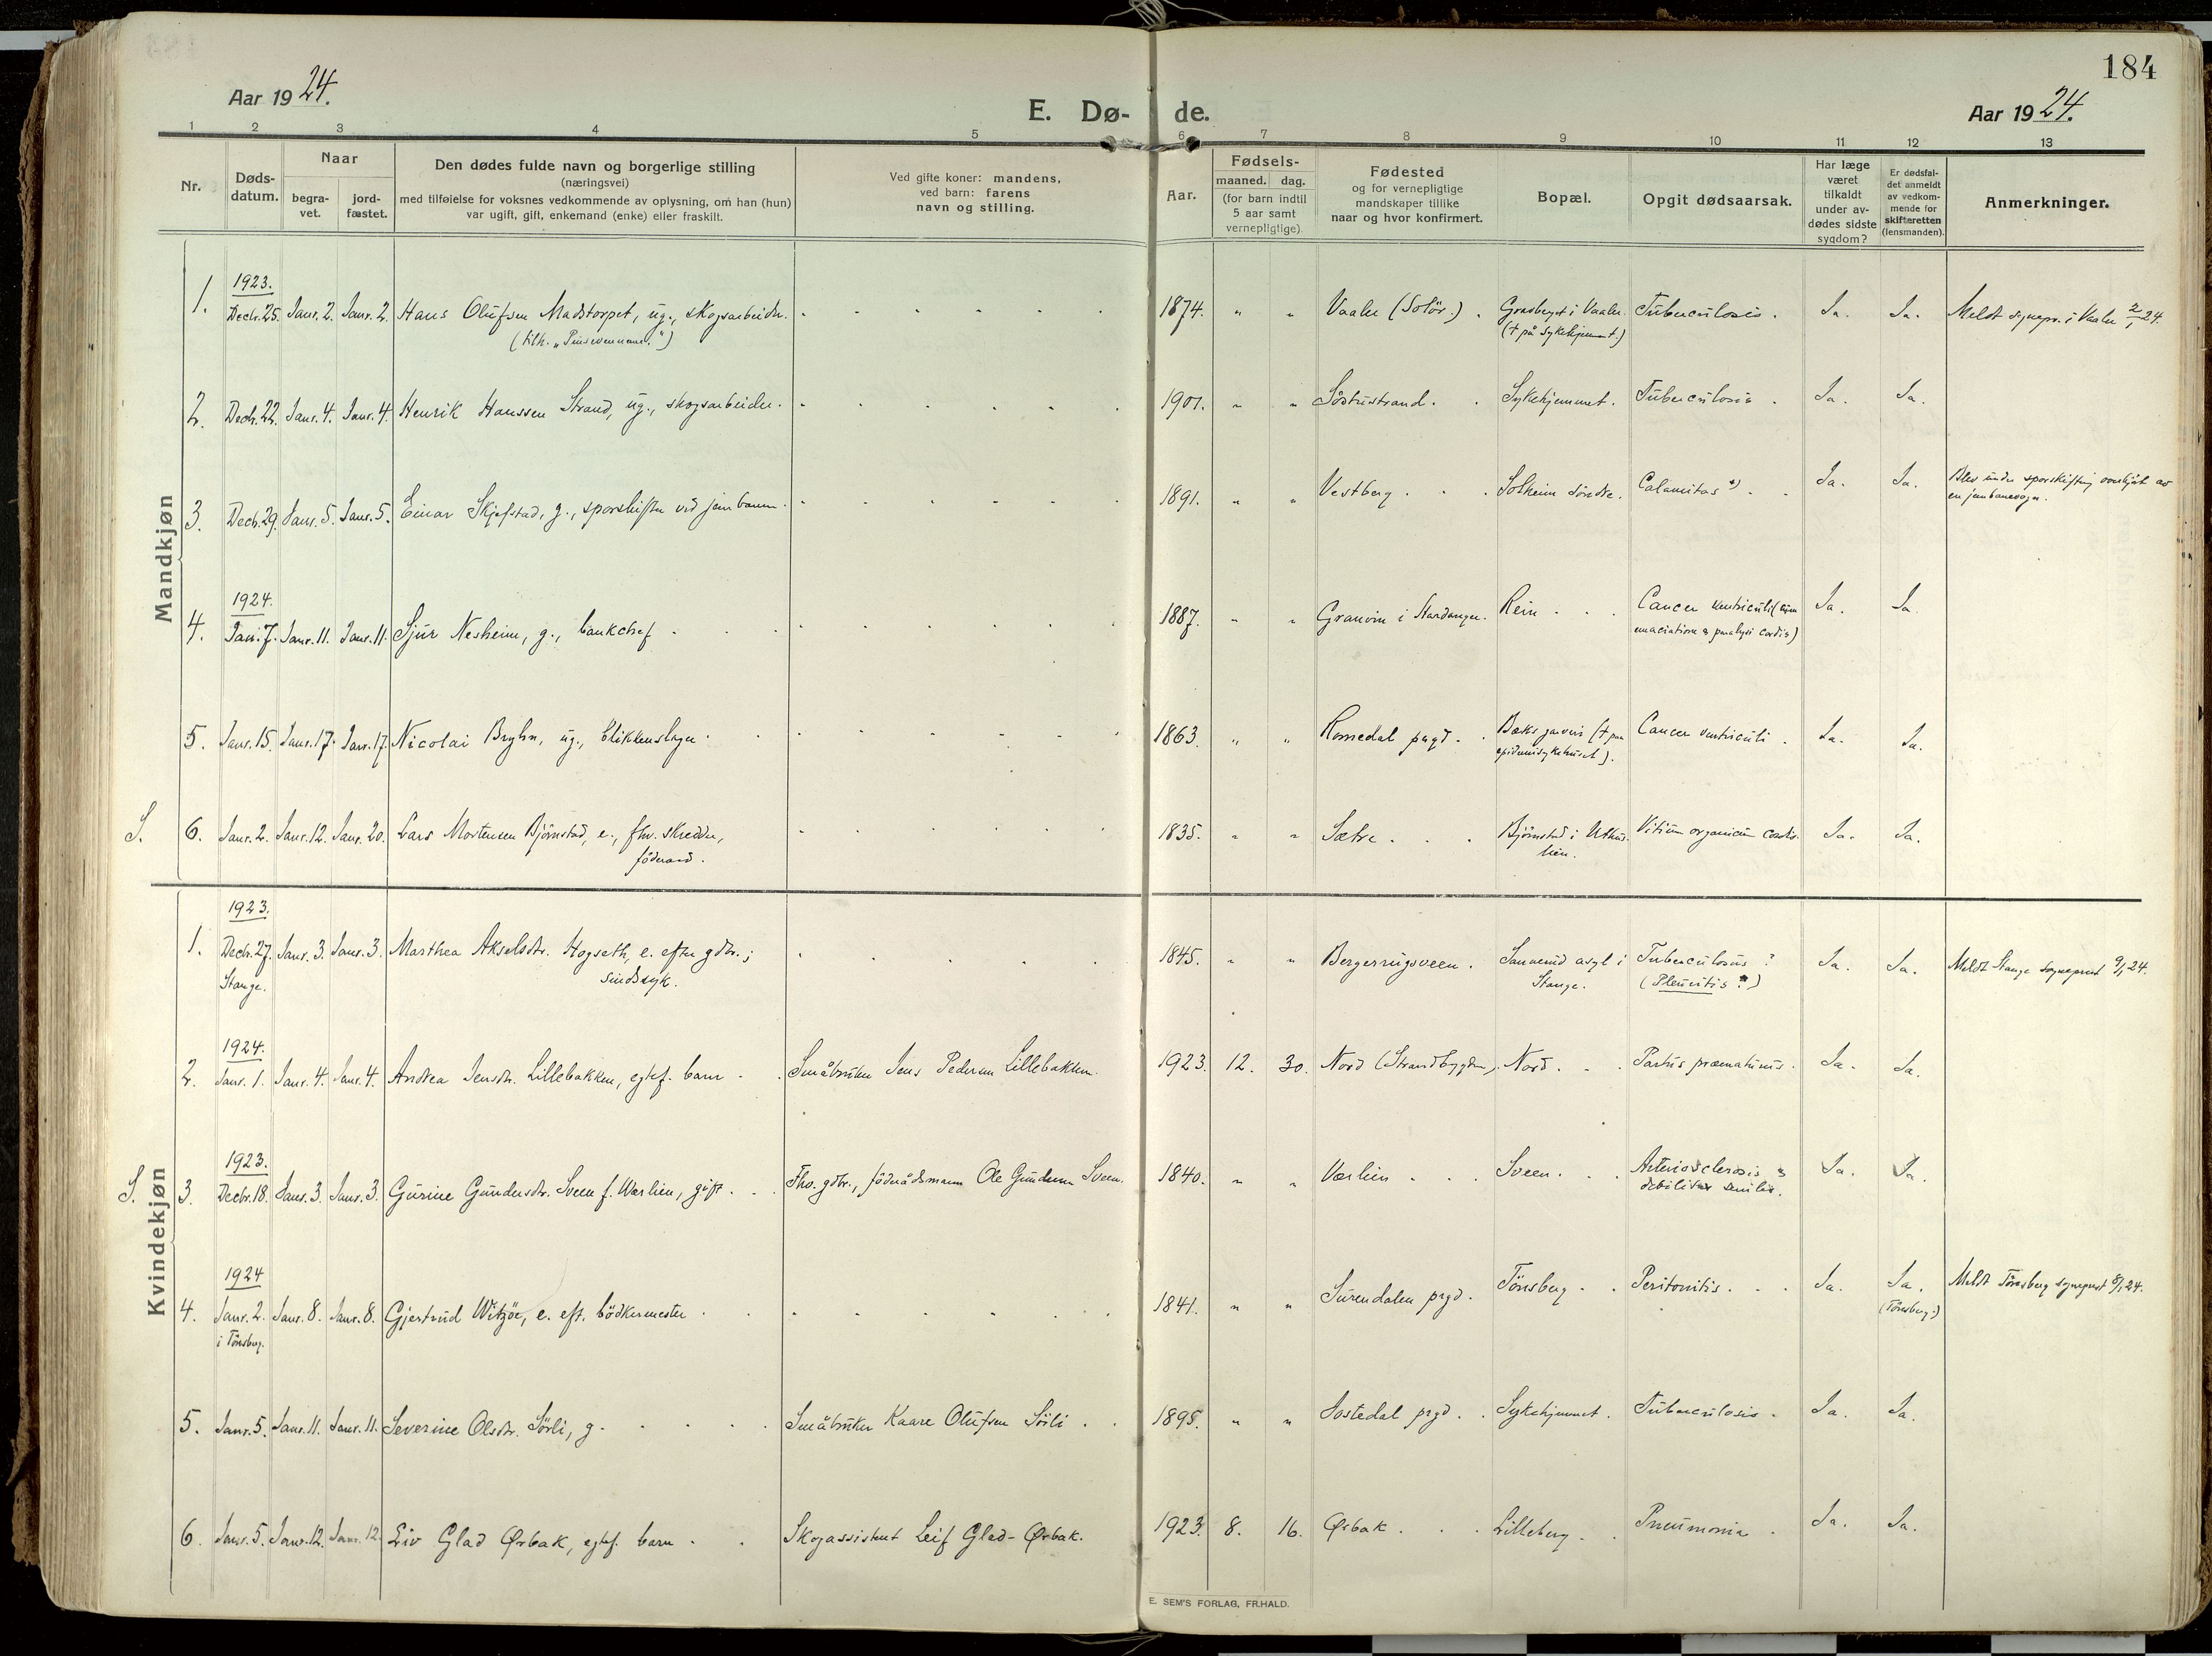 184
Aar 1924.
E. Dø-de.
Aar 1924.
1 2 3 4 5 6 7 8 9 10 11 12 13
Nr.
Døds-
datum.
Naar
begra-
vet.
jord-
fæstet.
Den dødes fulde navn og borgerlige stilling
(næringsvei)
med tilføielse for voksnes vedkommende av oplysning, om han (hun)
var ugift, gift, enkemand (enke) eller fraskilt.
Ved gifte koner: mandens,
ved barn: farens
navn og stilling.
Aar.
Fødsels-
maaned. dag.
(for barn indtil
5 aar samt
vernepligtige).
Fødested
og for vernepligtige
mandskaper tillike
naar og hvor konfirmert.
Bopæl.
Opgit dødsaarsak.
Har læge
været
tilkaldt
under av-
dødes sidste
sygdom?
Er dødsfal-
det anmeldt
av vedkom-
mende for
skifteretten
(lensmanden).
Anmerkninger.
Mandkjøn
1923.
1. Decbr. 25. Janr. 2. Janr. 2. Hans Olufsen Madstorpet, ug., skogsarbeider. 1874. " " Vaaler (Solör.) Grasberget i Vaaler. Tuberculosis. Ja. Ja. Meldt sognepr. i Vaaler 2/1 24.
(tilh. "Pinsevennene".) († på Sykehjemmet.)
2. Decbr. 22. Janr. 4. Janr. 4. Henrik Hanssen Strand, ug., skogsarbeider. 1901. " " Söstustrand. Sykehjemmet. Tuberculosis. Ja. Ja.
3. Decb. 29. Janr. 5. Janr. 5. Einar Skjefstad, g., sporskifter ved jernbanen. 1891. " " Vestberg. Solheim söndre. Calamitas *) Ja. Ja. Blev under sporskifting overkjört av
en jernbanevogn.
1924.
4. Janr. 7. Janr. 11. Janr. 11. Sjur Nesheim, g., bankchef 1887. " " Granvin i Hardanger. Rein. Cancer ventriculi (cum Ja. Ja.
emaciatione & paralysi cordis)
5. Janr. 15. Janr. 17. Janr. 17. Nicolai Bryhn, ug., blikkenslager. 1863. " " Romedal prgd. Bæksgaven († paa Cancer ventriculi. Ja. Ja.
epidemisykehuset).
S. 6. Janr. 2. Janr. 12. Janr. 20. Lars Mortensen Björnstad, e., fhv. skredder, 1835. " " Sætre. Björnstad i Uthus- Vitium organicum cordis. Ja. Ja.
föderaad. lien.
Kvindekjøn
1923.
1. Decbr. 27. Janr. 3. Janr. 3. Marthea Akselsdtr. Hogseth, e. efter gdbr.; 1845. " " Bergerrugsveen. Sannerud asyl i Tuberculosus? Ja. Ja. Meldt Stange sogneprest 9/1 24.
Stange. sindssyk. Stange. (Pleuritis?)
1924.
2. Janr. 1. Janr. 4. Janr. 4. Andrea Jensdtr. Lillebakken, egtef. barn Småbruker Jens Pedersen Lillebakken. 1923. 12. 30. Nord (Strandbygden). Nord. Partus præmaturus. Ja. Ja.
1923.
S. 3. Decbr. 18. Janr. 3. Janr. 3. Gurine Gundersdtr. Sveen f. Værlien, gift. Fhv. gdbr., föderådsmann Ole Gundersen Sveen. 1840. " " Værlien. Sveen. Arteriosclerosis & Ja. Ja.
debilitas senilis.
1924
4. Janr. 2. Janr. 8. Janr. 8. Gjertrud Witzöe, e. eft. bödkermester 1841. " " Surendalen prgd. Tönsberg. Peritonitis. Ja. Ja. Meldt Tönsberg sogneprest 8/1 24.
i Tönsberg. (Tönsberg.)
5. Janr. 5. Janr. 11. Janr. 11. Severine Olsdtr. Sörli, g. Småbruker Kaare Olufsen Sörli. 1895. " " Jostedal prgd. Sykehjemmet. Tuberculosis. Ja. Ja.
6. Janr. 5. Janr. 12. Janr. 12. Liv Glad Ørbak, egtef. barn Skogassistent Leif Glad-Ørbak. 1923. 8. 16. Ørbak. Lilleberg. Pneumonia. Ja. Ja.
E. SEM'S FORLAG, FR.HALD.